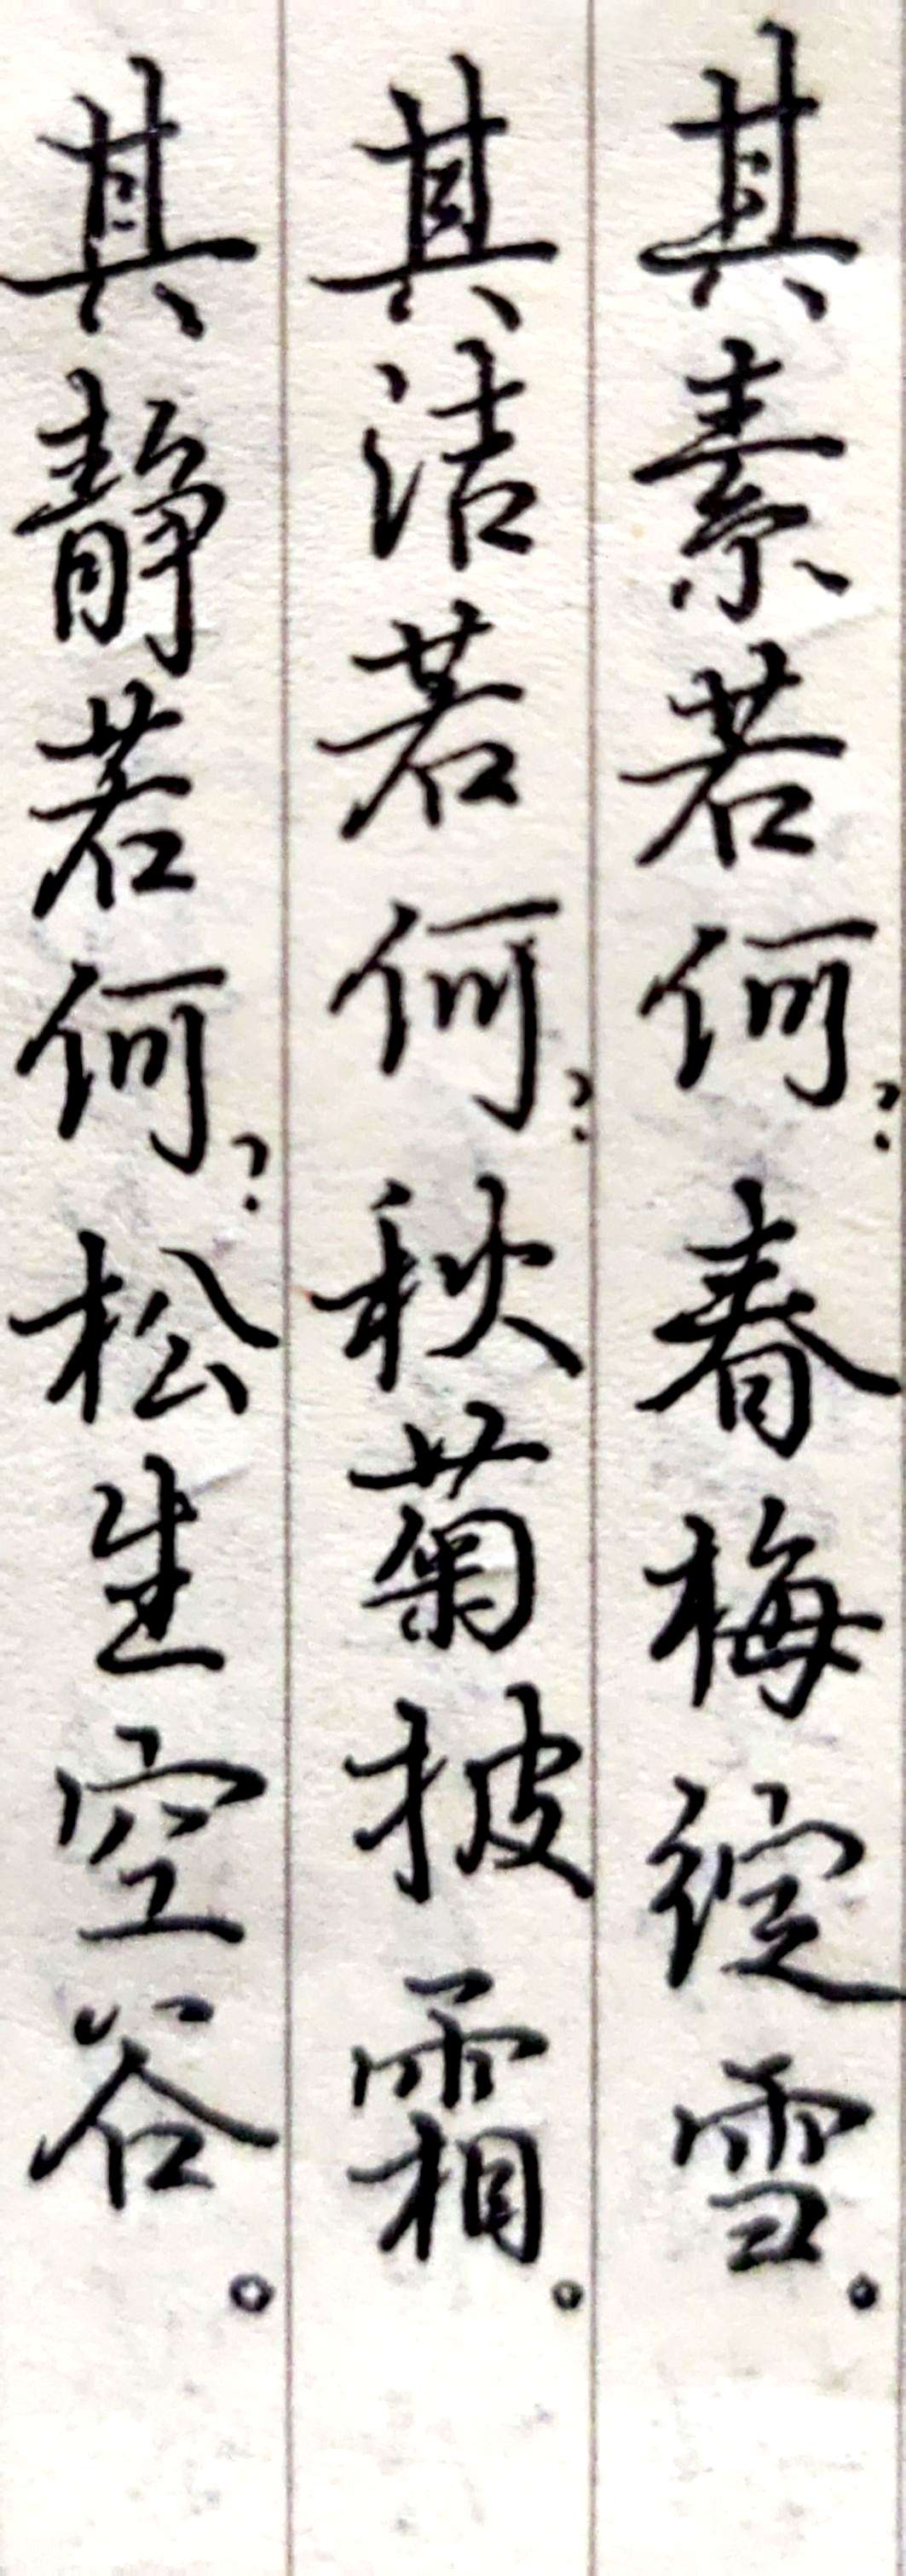 其素若何?春梅绽雪。
其洁若何?秋菊披霜。
其静若何?松生空谷。